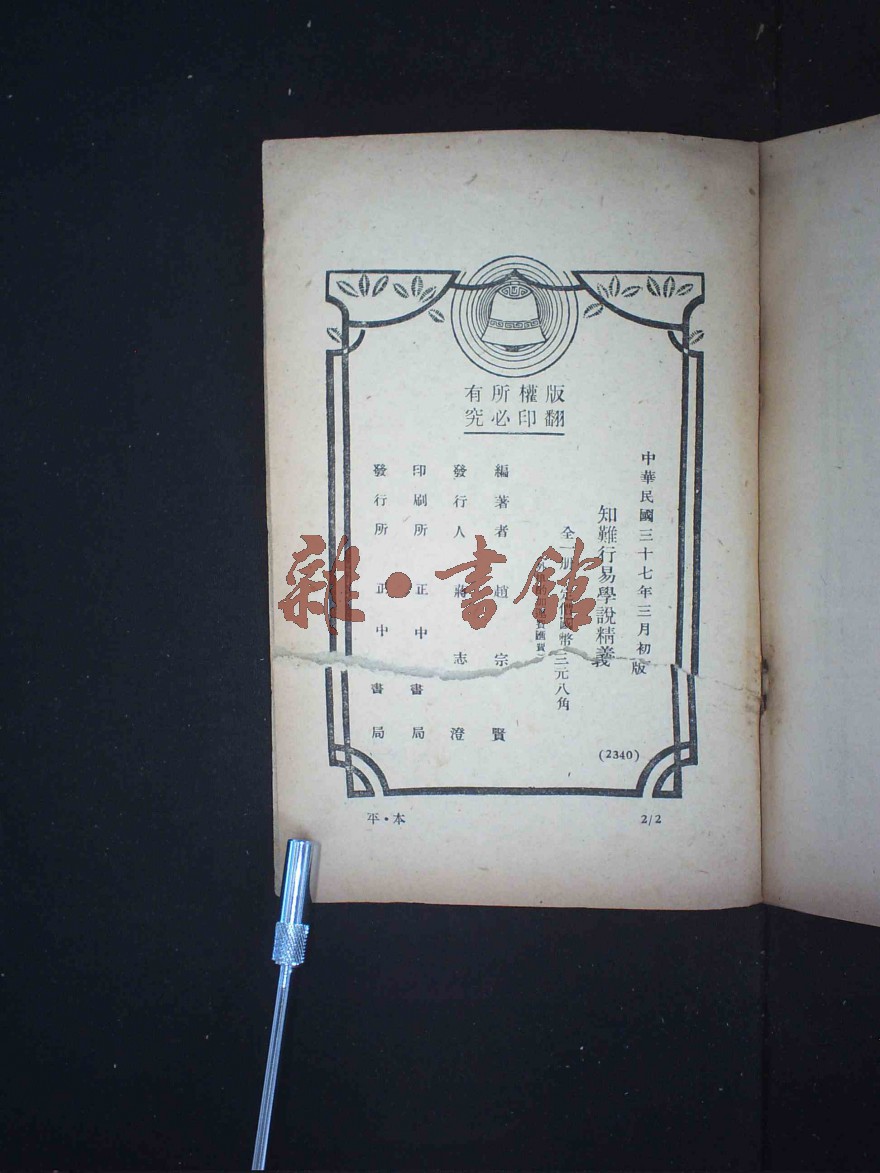 版權所有
翻印必究
中華民國三十七年三月初版
知難行易學說精義
全一冊 定價國幣三元八角
匯費
編著者 趙宗賢
發行人 蔣志澄
印刷所 正中書局
發行所 正中書局
(2340)
平・本
2/2
雜・書館